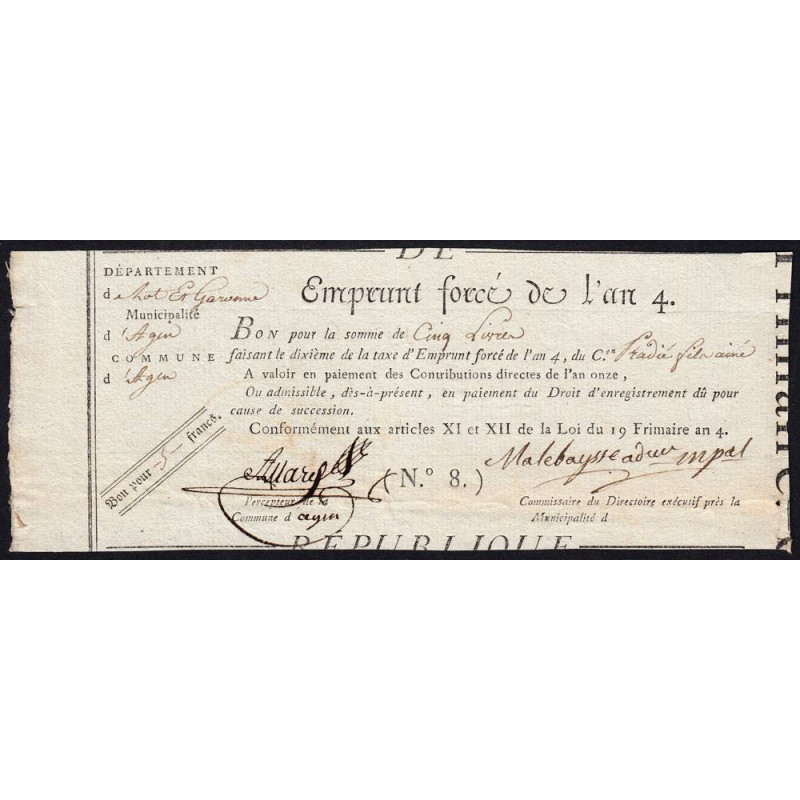 DE
DÉPARTEMENT
de Lot Et Garonne
Municipalité
d'Agen
COMMUNE
d'Agen
Bon pour 5 francs.
Emprunt forcé de l'an 4.
BON pour la somme de Cinq Livres
faisant le dixième de la taxe d'Emprunt forcé de l'an 4, du C.en Pradié fils ainé
A valoir en paiement des Contributions directes de l'an onze,
Ou admissible, dès-à-présent, en paiement du Droit d'enregistrement dû pour
cause de succession.
Conformément aux articles XI et XII de la Loi du 19 Frimaire an 4.
(N.° 8.)
Malebaysse
Percepteur de la
Commune d agen
Commissaire du Directoire exécutif près la
Municipalité d
RÉPUBLIQUE